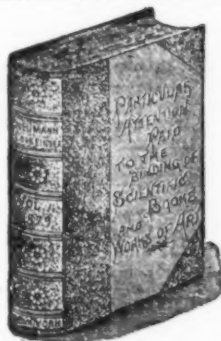 NEUMANN
PARTICULAR
ATTENTION
PAID
TO THE
BINDING OF
SCIENTIFIC
BOOKS
AND
WORKS OF ART